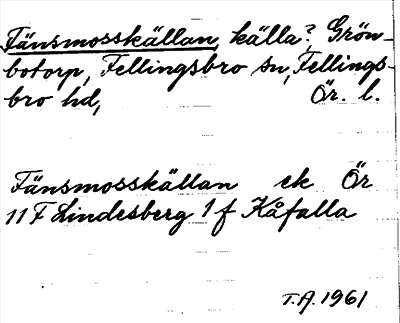 Fänsmosskällan, källa? Grön-
botorp, Fellingsbro sn, Fellings-
bro hd, Ör. l.
Fänsmosskällan ek Ör
11 F Lindesberg 1 f Kåfalla
T.A. 1961